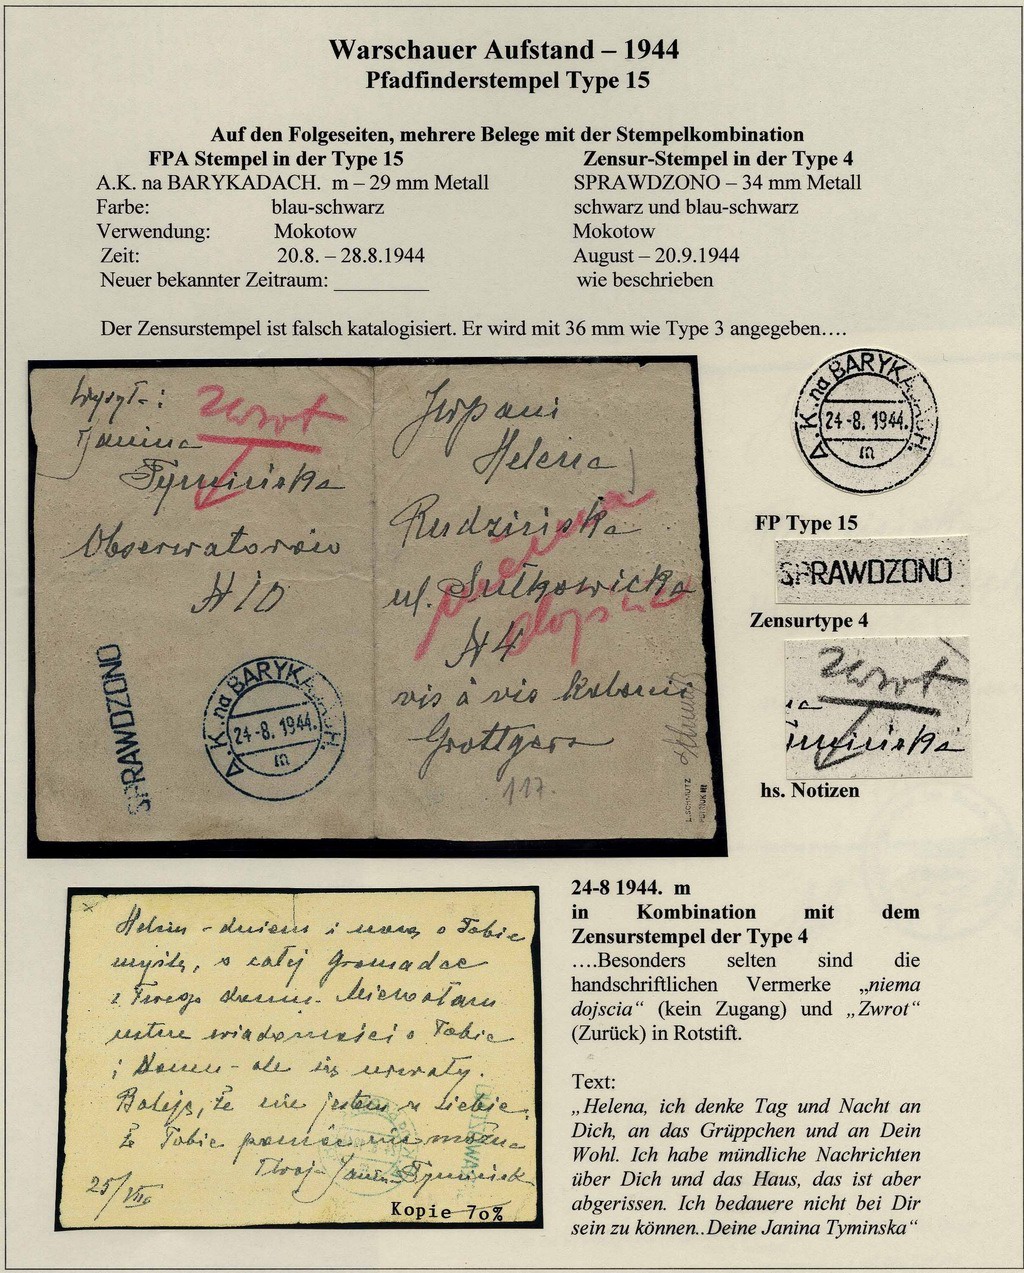 Warschauer Aufstand – 1944
Pfadfinderstempel Type 15
Auf den Folgeseiten, mehrere Belege mit der Stempelkombination
FPA Stempel in der Type 15
Zensur-Stempel in der Type 4
A.K. na BARYKADACH. m – 29 mm Metall
SPRAWDZONO – 34 mm Metall
Farbe: blau-schwarz
schwarz und blau-schwarz
Verwendung: Mokotow
Mokotow
Zeit: 20.8. – 28.8.1944
August – 20.9.1944
Neuer bekannter Zeitraum: __________
wie beschrieben
Der Zensurstempel ist falsch katalogisiert. Er wird mit 36 mm wie Type 3 angegeben….
Wysył-:
Zwrot
Janina
Tymińska
Obserwatorów
N 10
SPRAWDZONO
A.K. na BARYKADACH.
24-8. 1944.
m
JWpani
Helena
Rudzińska
niema
ul. Sułkowicka
dojścia
N 4
vis à vis kolonii
Grottgera
117.
E. SCHMUTZ
A.K. na BARYKADACH.
24-8. 1944.
m
FP Type 15
SPRAWDZONO
Zensurtype 4
Zwrot
hs. Notizen
Helciu - dniem i nocą o Tobie
myślę, o całej Gromadce
i Twego domu. Miewałam
ustne wiadomości o Tobie
i domu - ale się urwały.
Boleję, że nie jestem u Ciebie,
że Tobie pomóc nie można
Twoja Janina Tymińska
25/VIII
Kopie 70%
24-8 1944. m
in Kombination mit dem
Zensurstempel der Type 4
….Besonders selten sind die
handschriftlichen Vermerke „niema
dojscia“ (kein Zugang) und „Zwrot“
(Zurück) in Rotstift.
Text:
„Helena, ich denke Tag und Nacht an
Dich, an das Grüppchen und an Dein
Wohl. Ich habe mündliche Nachrichten
über Dich und das Haus, das ist aber
abgerissen. Ich bedauere nicht bei Dir
sein zu können..Deine Janina Tyminska“